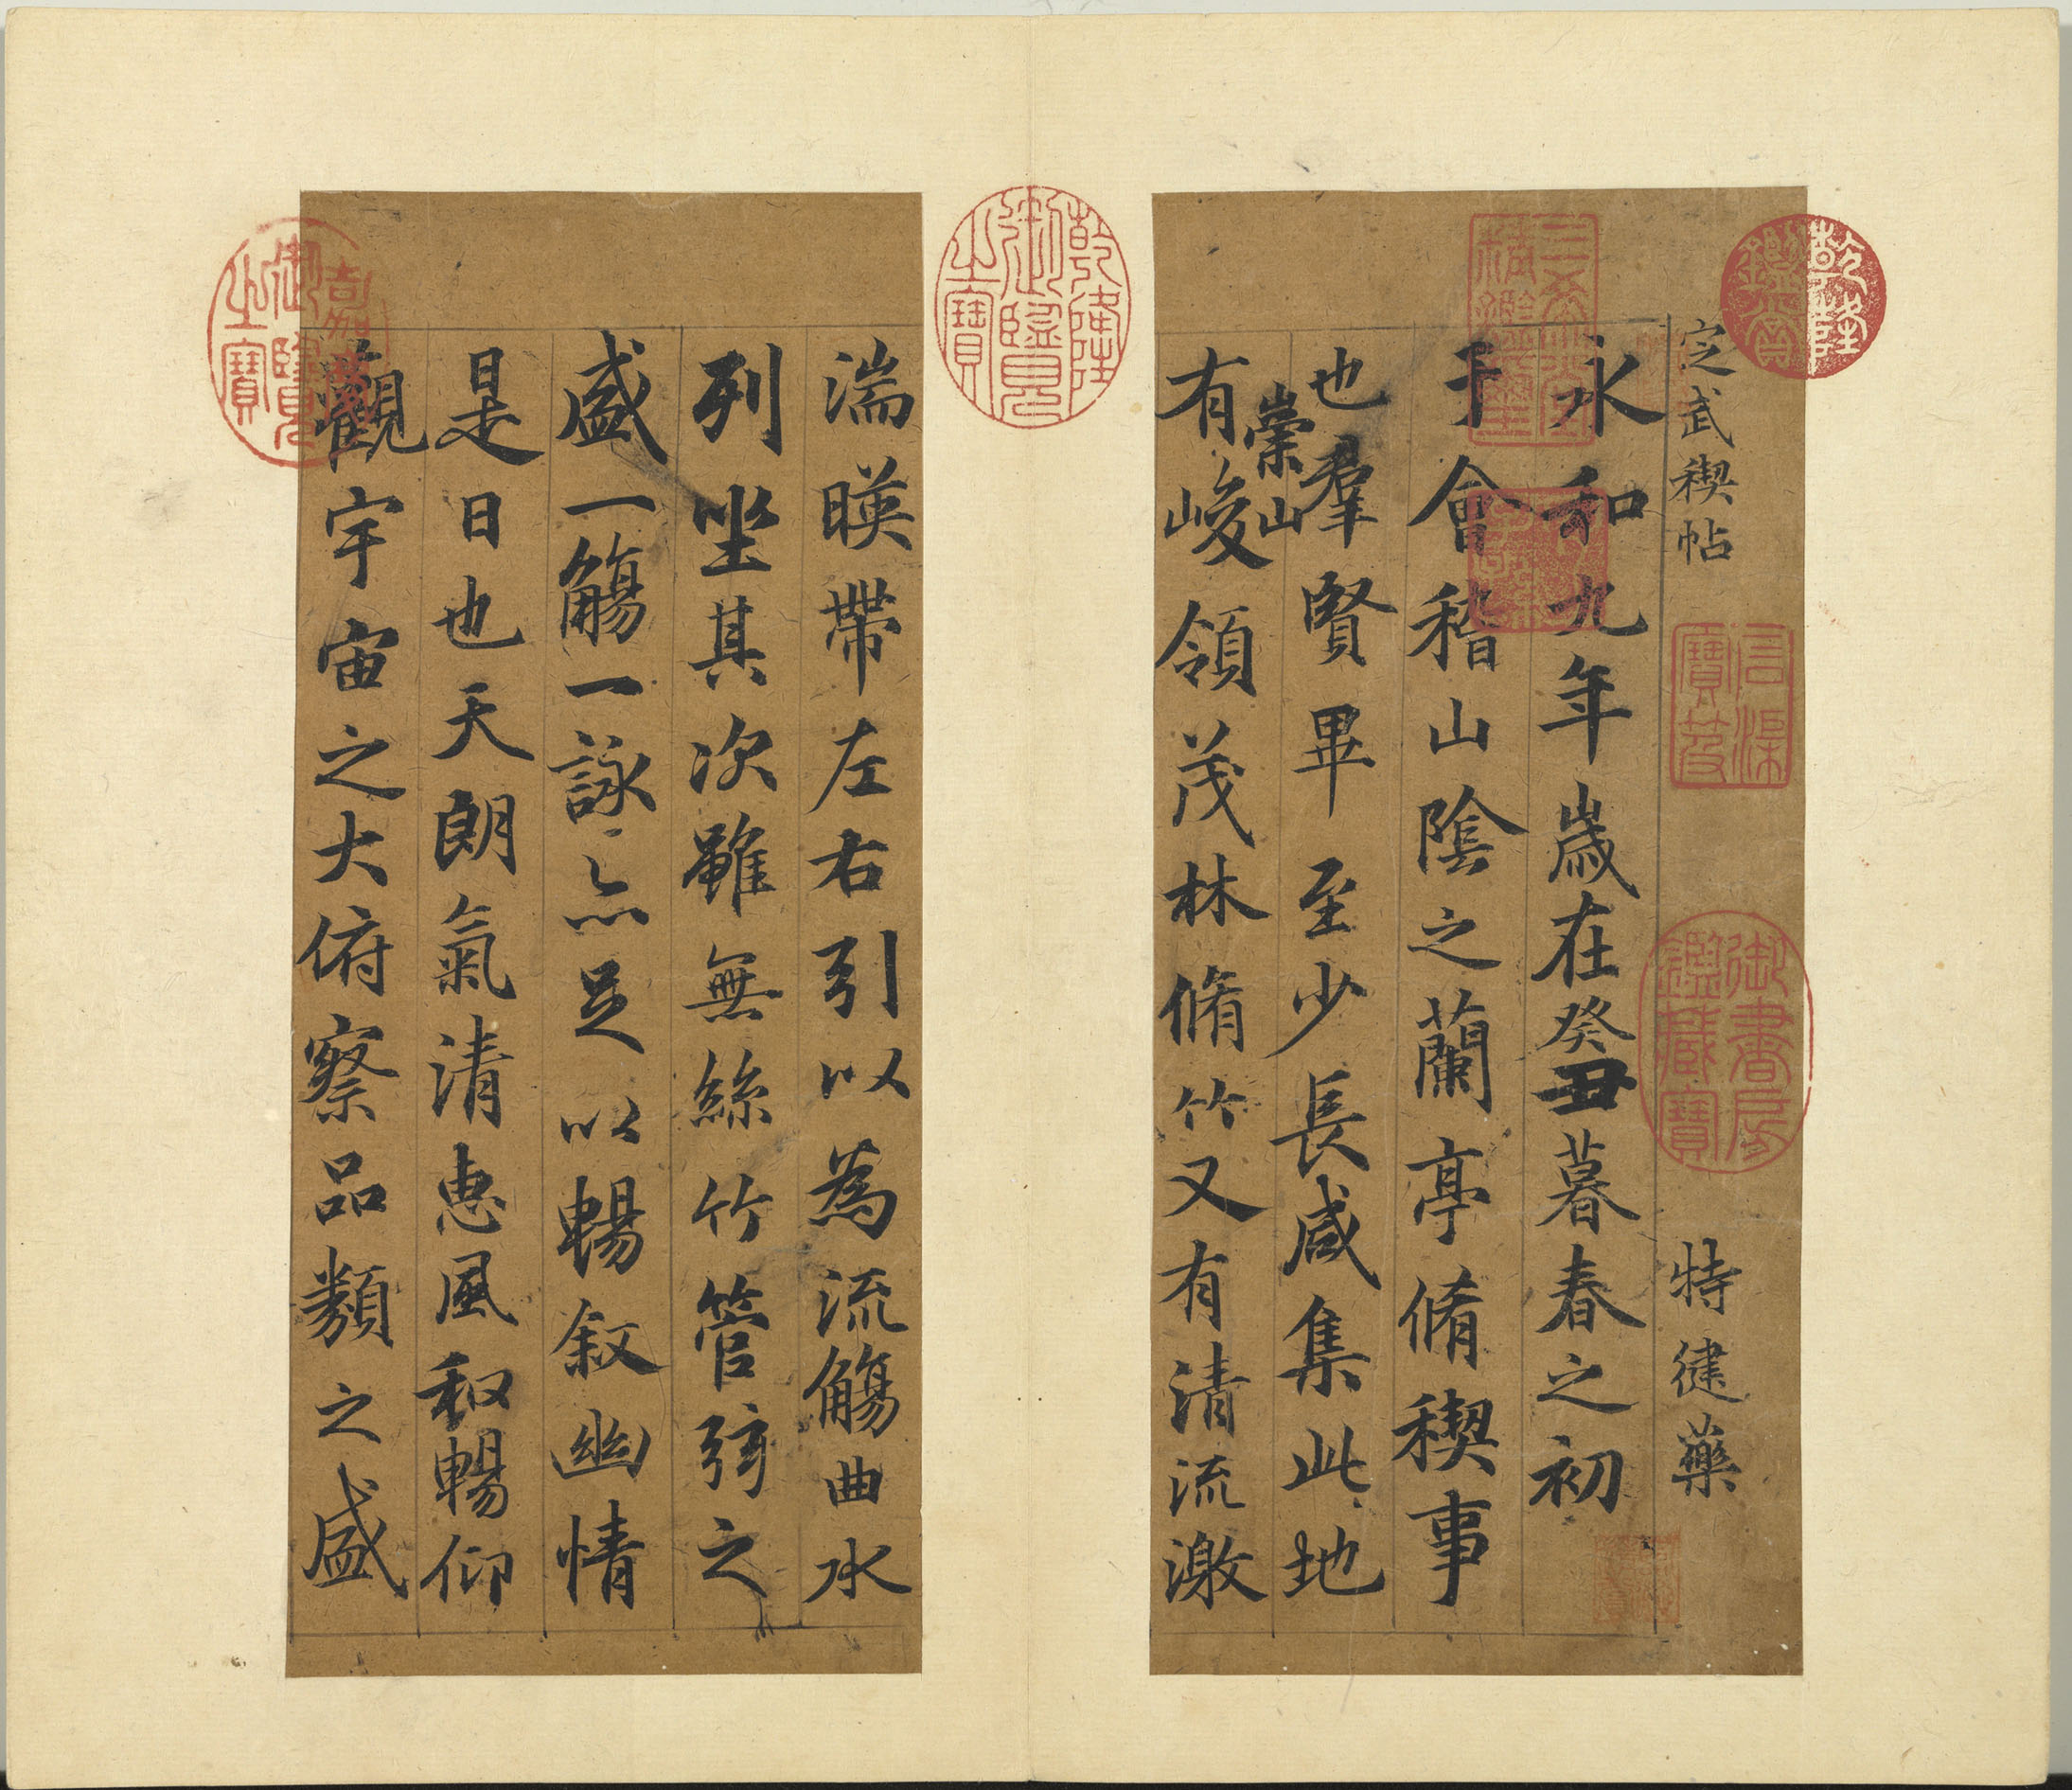 定武禊帖 特健藥
永和九年歲在癸丑暮春之初
于會稽山陰之蘭亭脩禊事
也羣賢畢至少長咸集此地
崇山
有峻領茂林脩竹又有清流激
湍暎帶左右引以為流觴曲水
列坐其次雖無絲竹管弦之
盛一觴一詠亦足以暢叙幽情
是日也天朗氣清惠風和暢仰
觀宇宙之大俯察品類之盛
乾隆鑑賞
三希堂精鑑璽
宜子孫
石渠寶笈
御書房鑑藏寶
乾隆御覽之寶
嘉慶御覽之寶